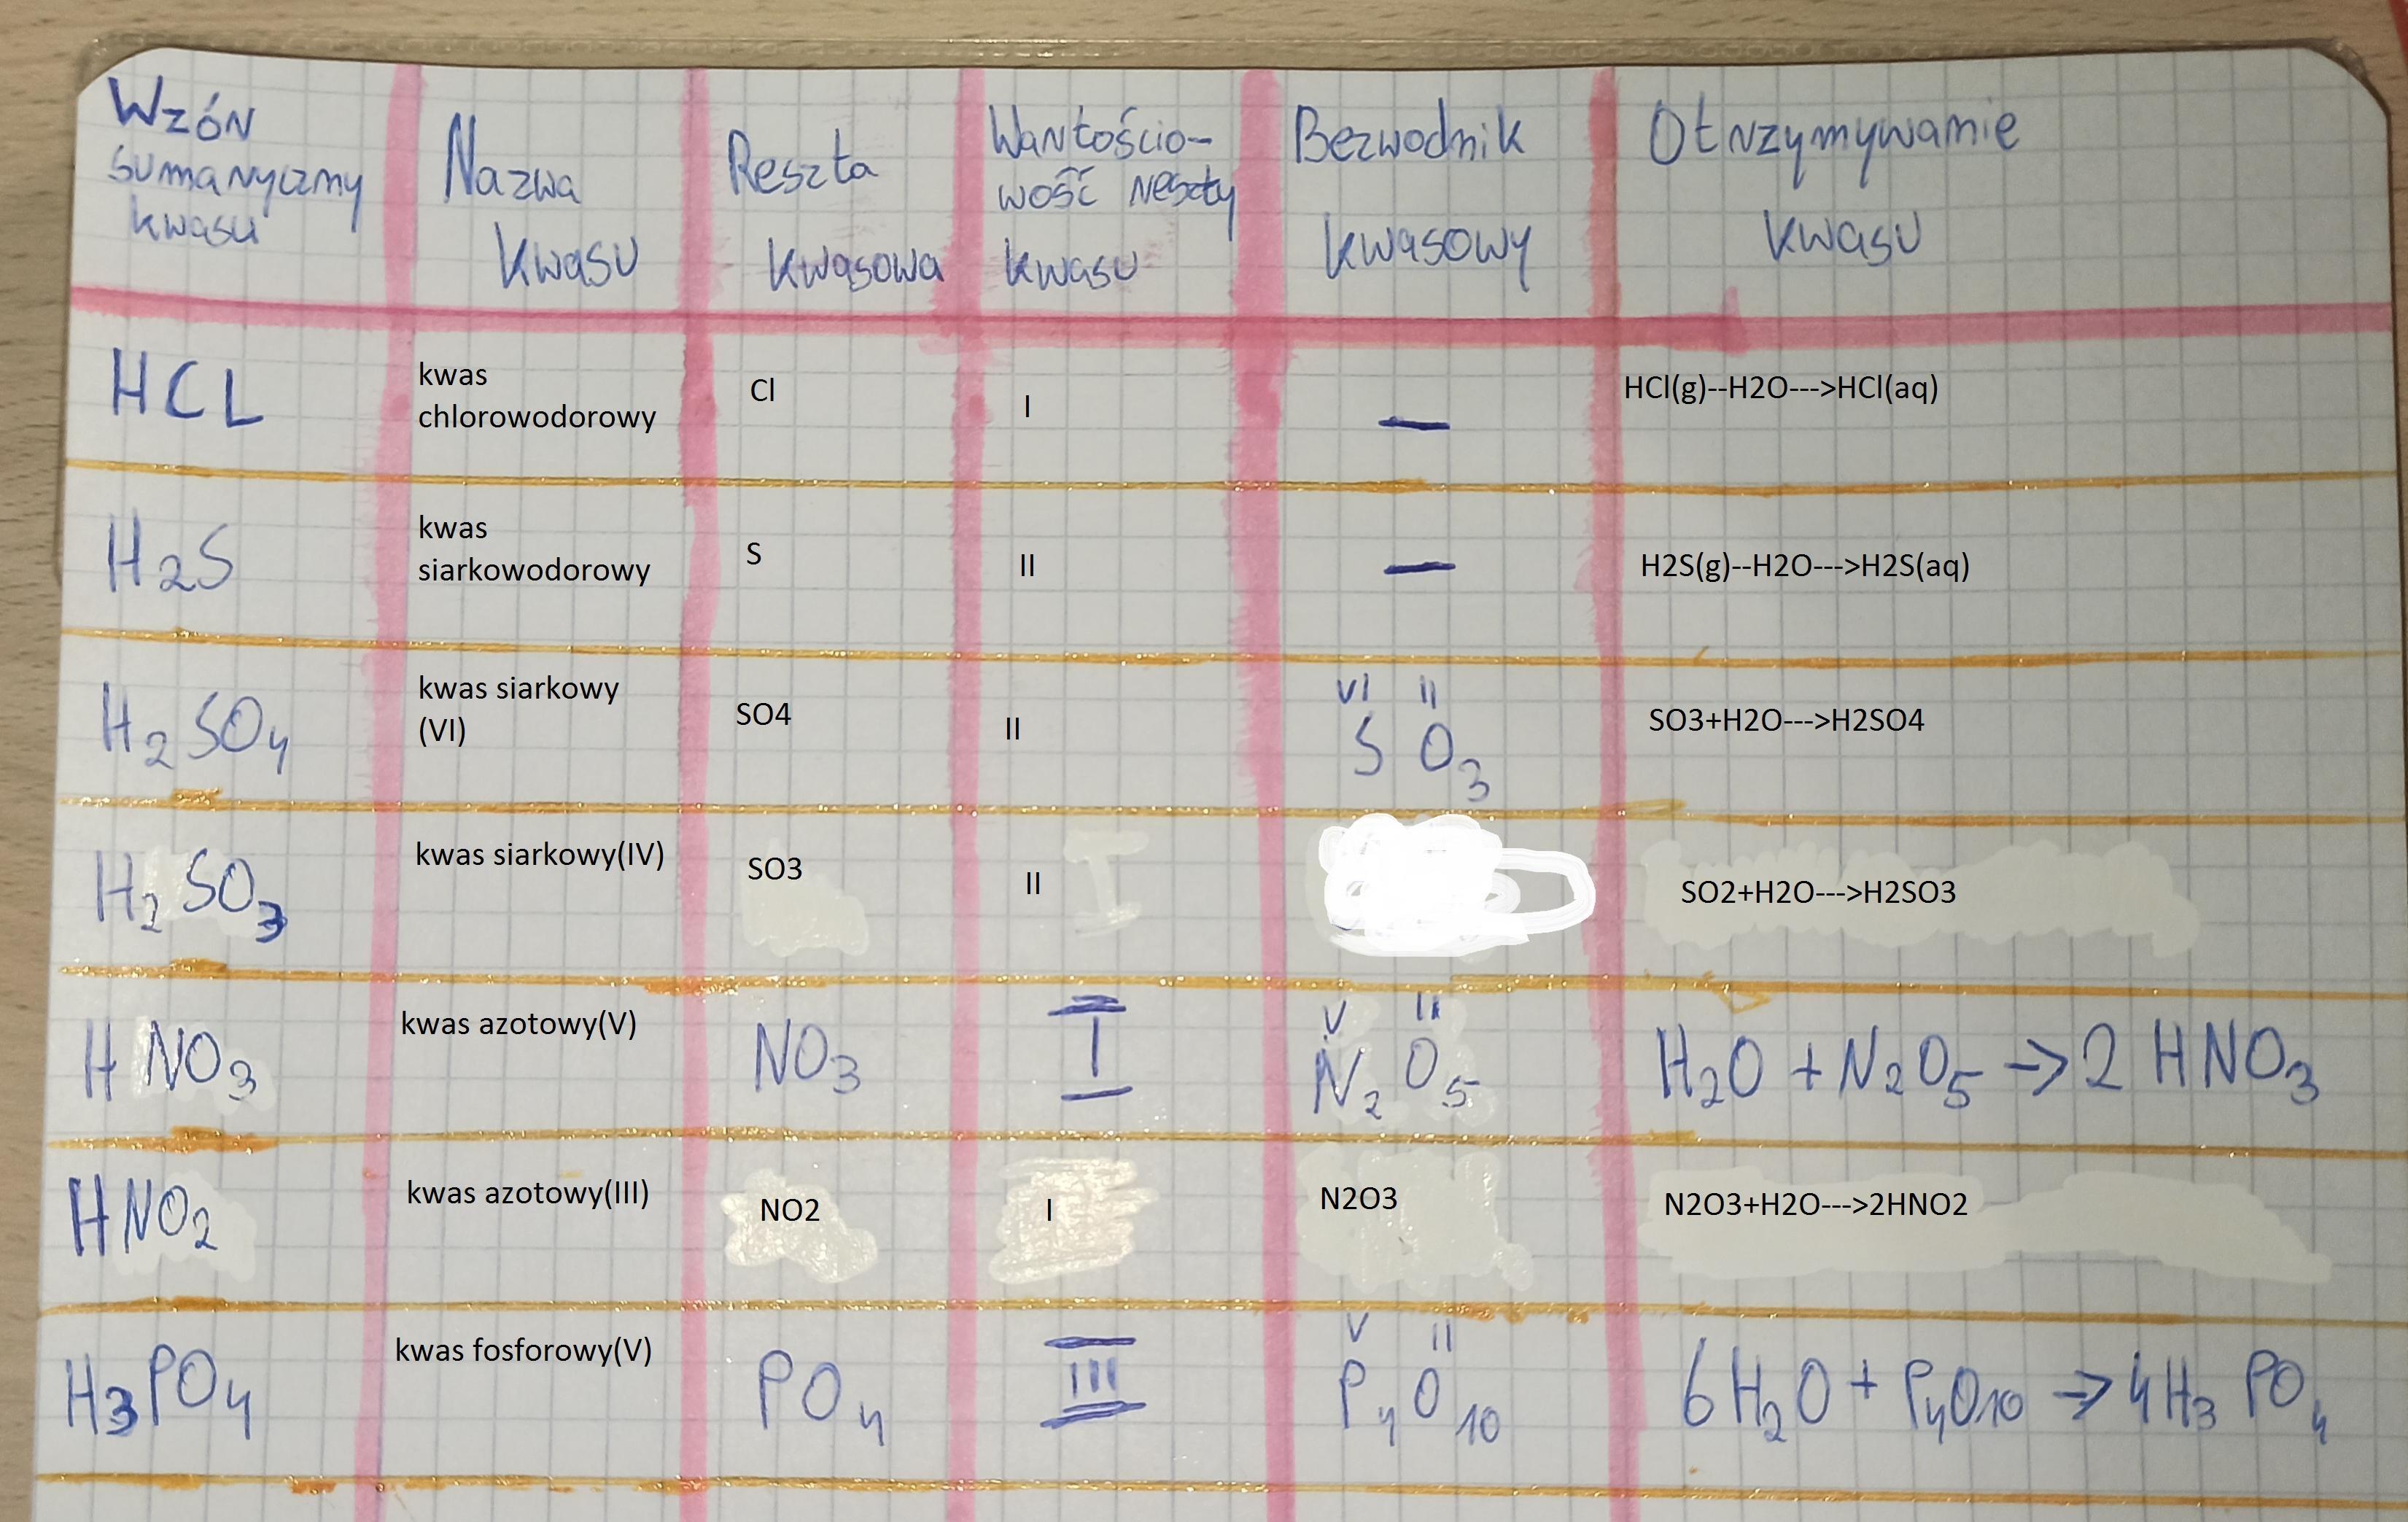 Wzór
sumaryczny
kwasu
Nazwa
kwasu
Reszta
kwasowa
Wartościo-
wość reszty
kwasu
Bezwodnik
kwasowy
Otrzymywanie
kwasu
HCL
kwas
chlorowodorowy
Cl
I
—
HCl(g)--H2O--->HCl(aq)
H2S
kwas
siarkowodorowy
S
II
—
H2S(g)--H2O--->H2S(aq)
H2SO4
kwas siarkowy
(VI)
SO4
II
VI II
SO3
SO3+H2O--->H2SO4
H2SO3
kwas siarkowy(IV)
SO3
II
SO2+H2O--->H2SO3
HNO3
kwas azotowy(V)
NO3
I
V II
N2O5
H2O + N2O5 → 2 HNO3
HNO2
kwas azotowy(III)
NO2
I
N2O3
N2O3+H2O--->2HNO2
H3PO4
kwas fosforowy(V)
PO4
III
V II
P4O10
6H2O + P4O10 → 4H3PO4